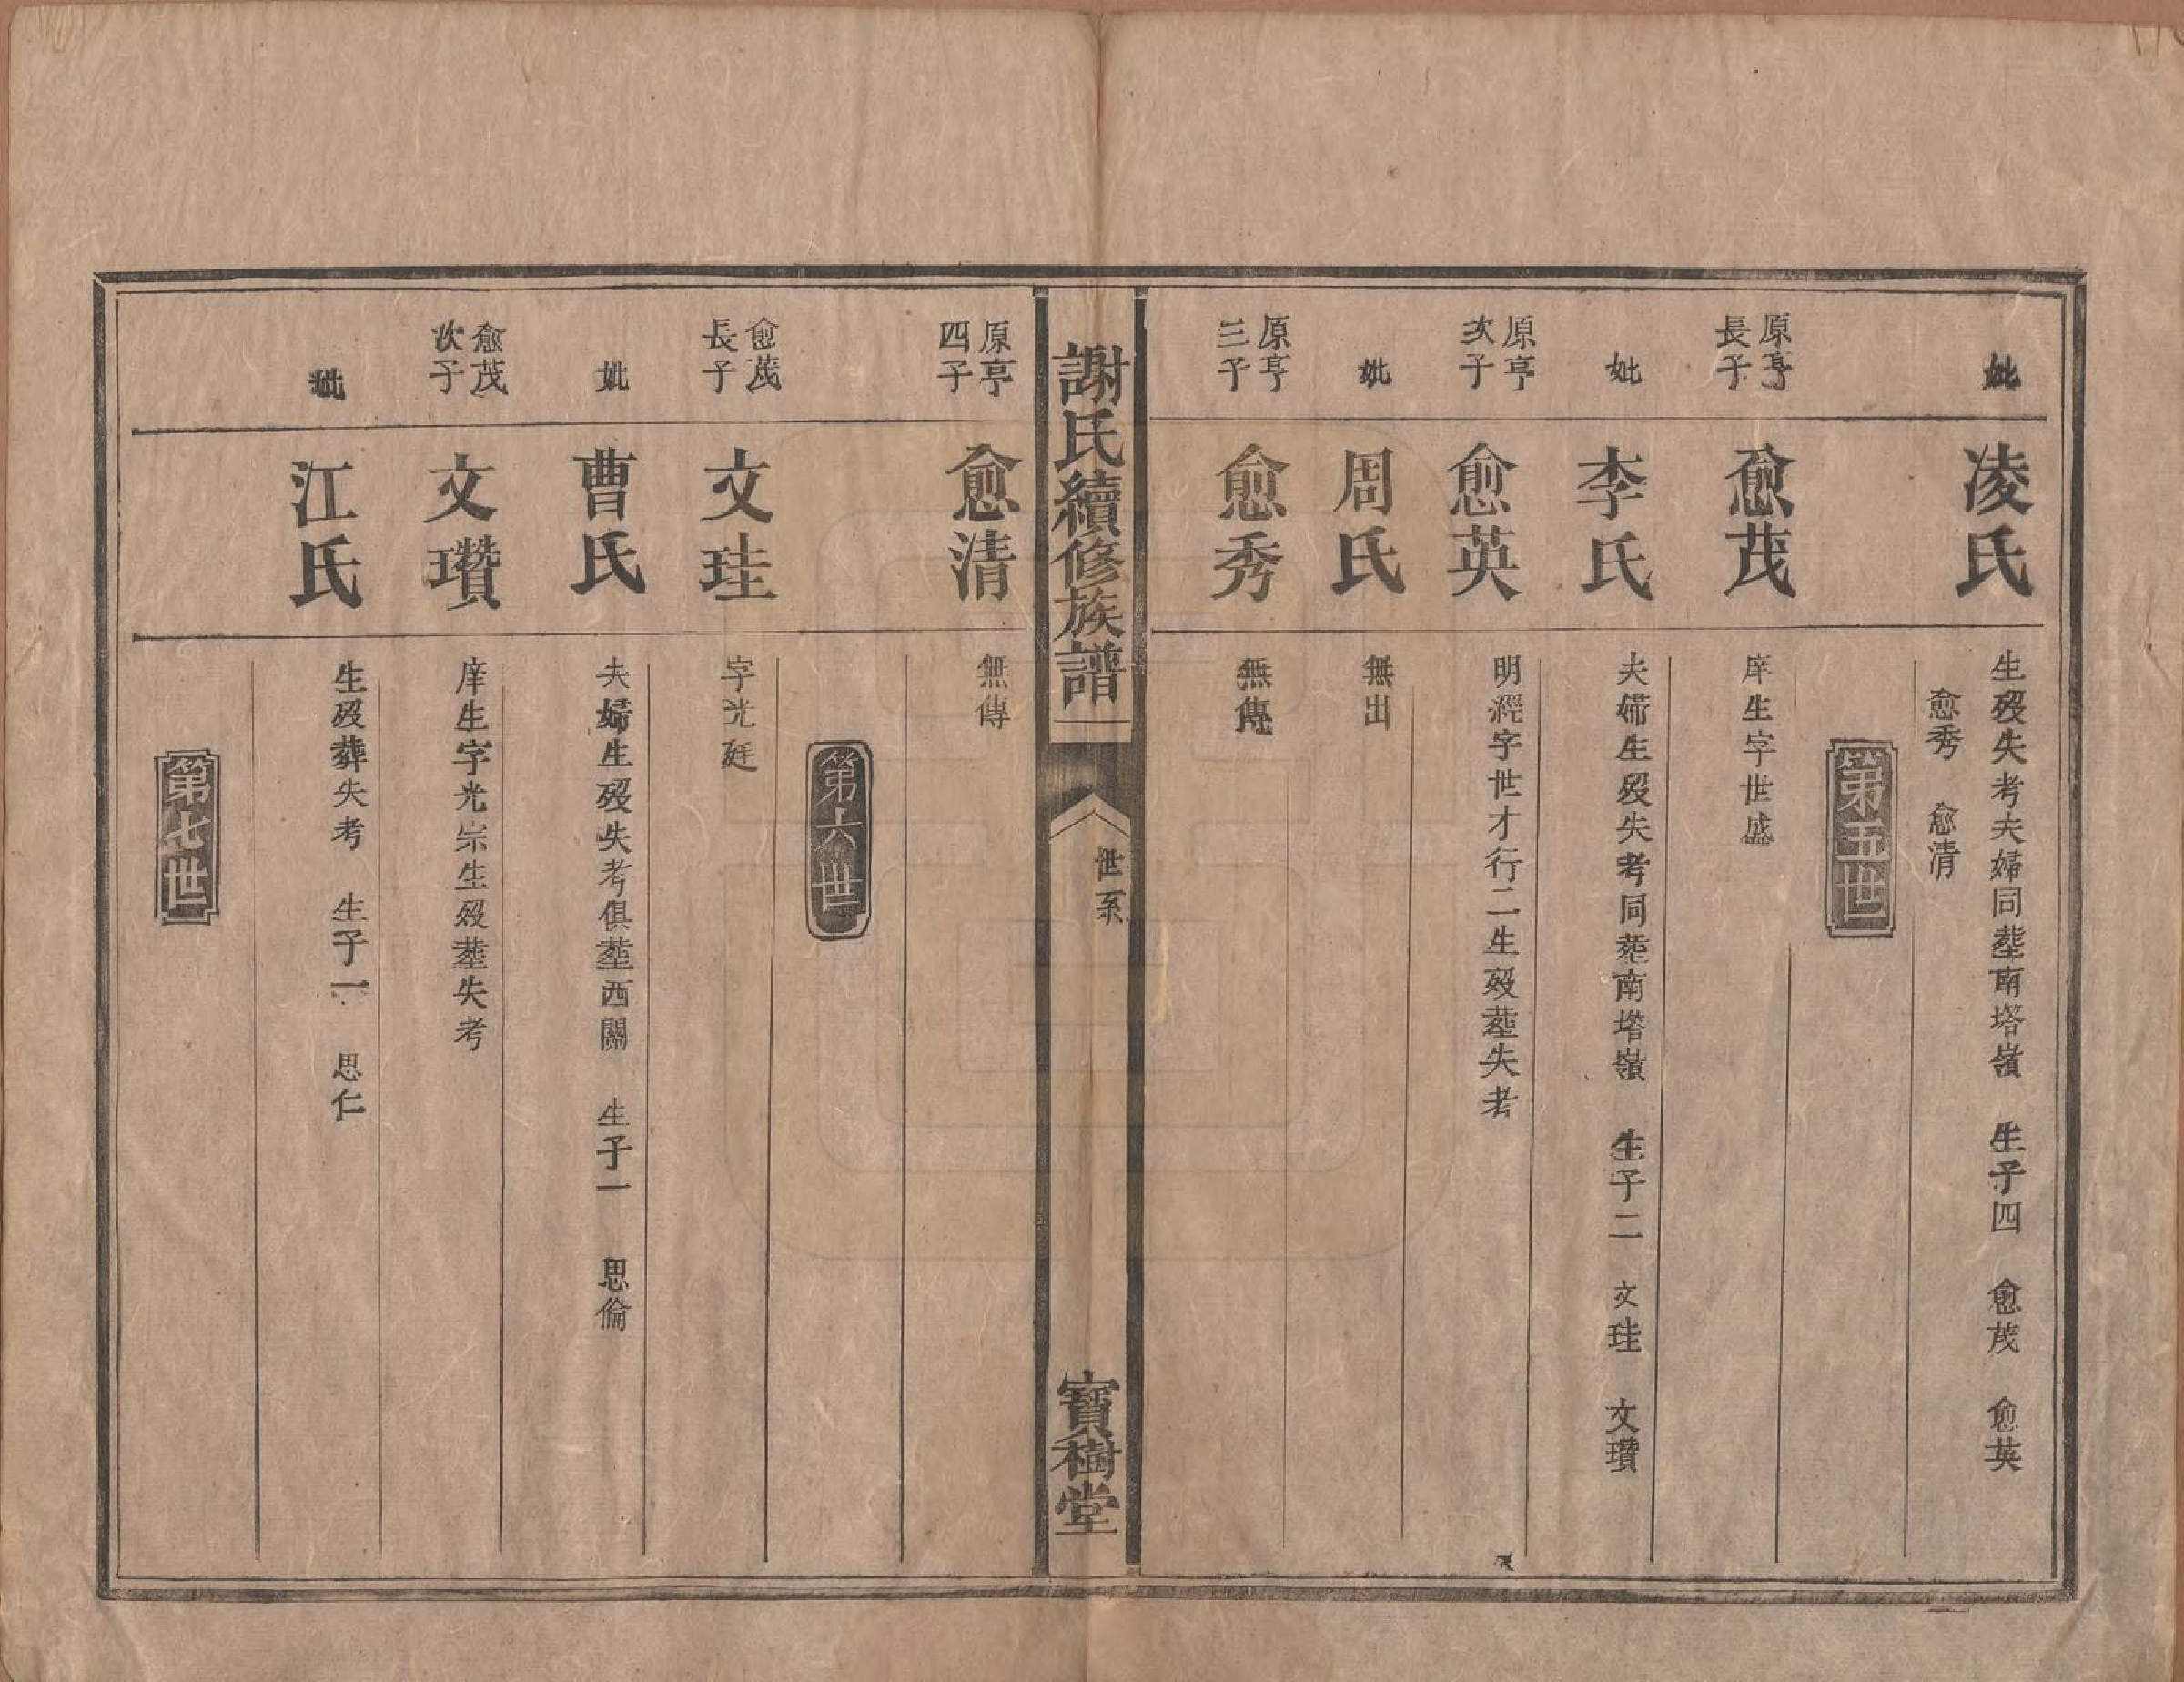 妣
凌氏
生殁失考夫婦同塟南塔嶺 生子四 愈茂 愈英
愈秀 愈清
第五世
原亨
長子
愈茂
庠生字世盛
妣
李氏
夫婦生殁失考同塟南塔嶺 生子二 文珪 文瓚
原亨
次子
愈英
明經字世才行二生殁塟失考
妣
周氏
無出
原亨
三子
愈秀
無傳
謝氏續修族譜
世系
寶樹堂
原亨
四子
愈清
無傳
第六世
愈茂
長子
文珪
字光廷
妣
曹氏
夫婦生殁失考俱塟西關 生子一 思倫
愈茂
次子
文瓚
庠生字光宗生殁塟失考
妣
江氏
生殁葬失考 生子一 思仁
第七世